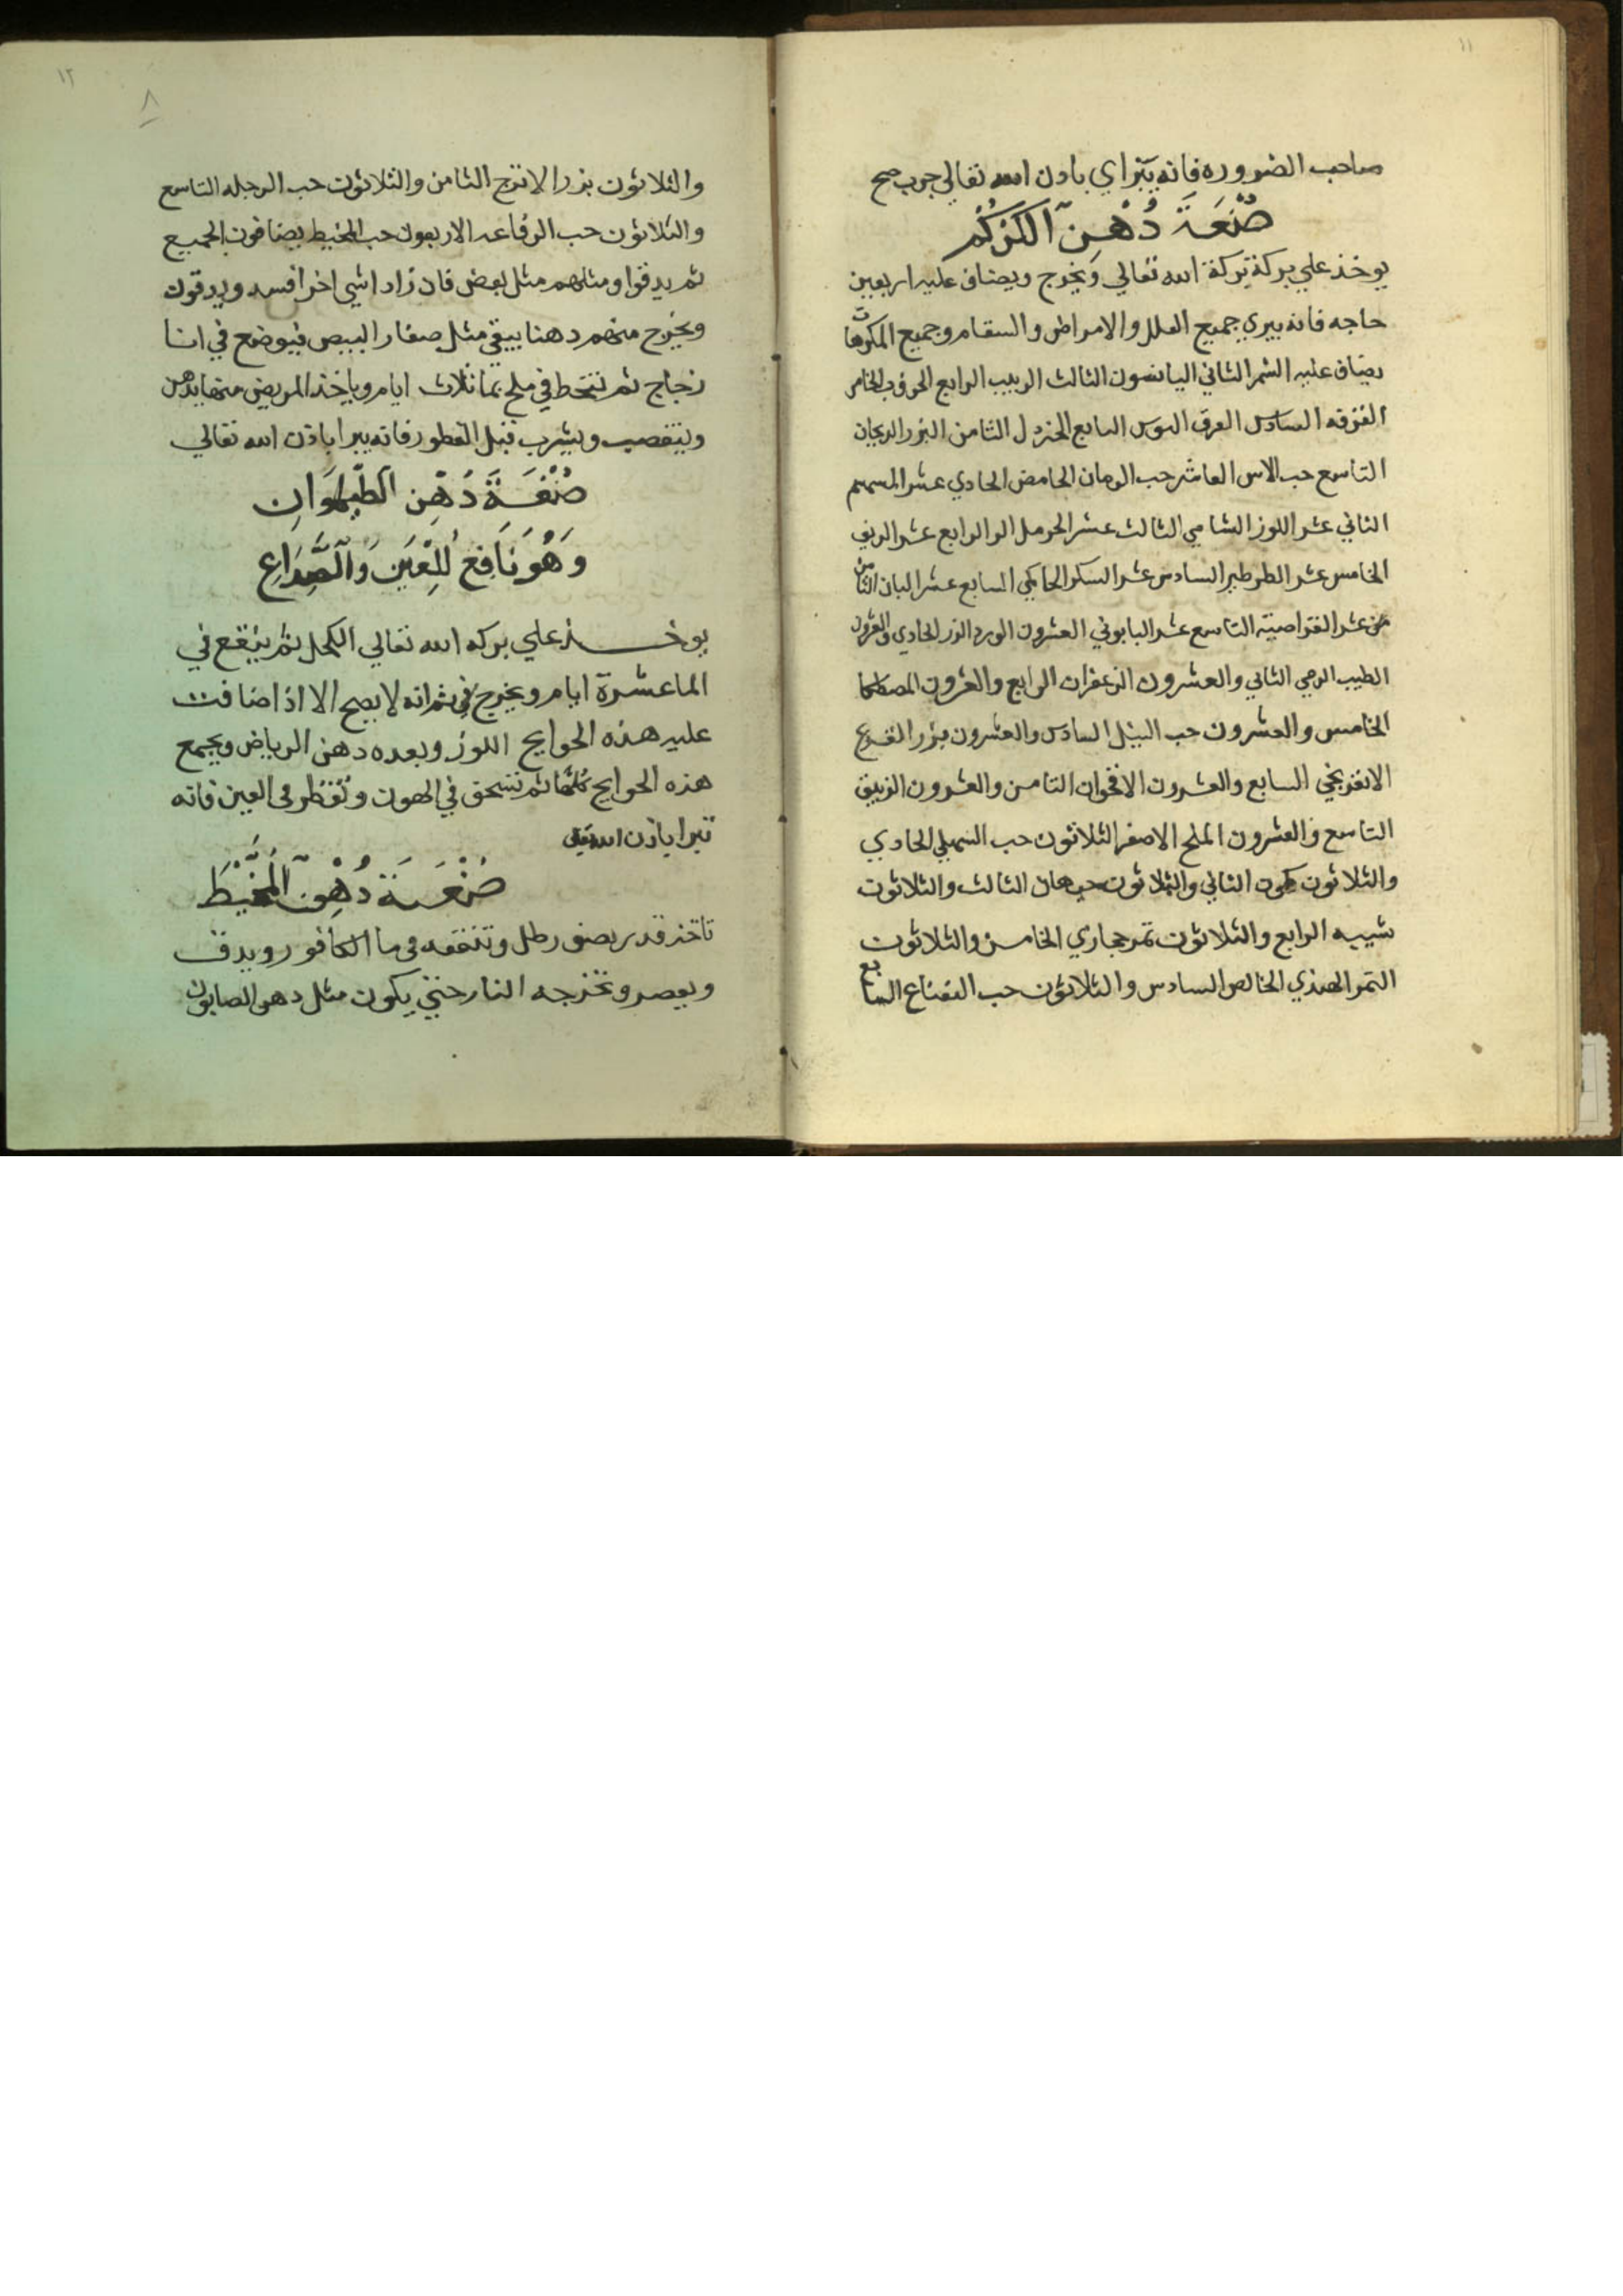 ١١
صاحب الضروره فانه يبراي بادن الله تعالي جرب صح
صُنْعَة دُهْنِ الكُرْكُم
يوخذ علي بركة بركة الله تعالي ويخرج ويضاف عليه اربعين
حاجه فانه يبري جميع العلل والامراض والسقام وجميع المكروهات
يضاف عليه الشمر الثاني اليانسون الثالث الزبيب الرابع الخروب الخامس
القرفه السادس العرق السوس السابع الخردل الثامن البزر الريحان
التاسع حب الاس العاشر حب الرمان الحامض الحادي عشر السمسم
الثاني عشر اللوز الشامي الثالث عشر الحرمل الو الرابع عشر الزيف
الخامس عشر الطرطير السادس عشر السكر الحاكمي السابع عشر البان الثامن
عشر القراصيه التاسع عشر البابوني العشرون الورد الزر الحادي والعشرون
الطيب الرحي الثاني والعشرون الزعفران الرابع والعشرون المصطكا
الخامس والعشرون حب النيل السادس والعشرون بزر القرع
الافرنجي السابع والعشرون الاقحوان الثامن والعشرون الزيبق
التاسع والعشرون الملح الاصفر الثلاثون حب السهيلي الحادي
والثلاثون كمون الثاني والثلاثون حبهان الثالث والثلاثون
شيبه الرابع والثلاثون تمر حجازي الخامس والثلاثون
التمر الهندي الخالص السادس والثلاثون حب النعناع السابع
١٢
٨
والثلاثون بزر الاترج الثامن والثلاثون حب الرجله التاسع
والثلاثون حب الرقاعه الاربعون حب المخيط يضافون الجميع
ثم يدقوا ومثلهم مثل بعض فان زاد اشي اخر افسده ويدقون
ويخرج منهم دهنا يبقي مثل صفار البيض فيوضع في انا
زجاج ثم تنحط في ملح بما ثلاث ايام وياخذ المريض منها يدهن
ويتقصب ويشرب قبل الفطور فانه يبرا باذن الله تعالي
صُنْعَة دُهْنِ الطيهوانِ
وَهُوَ نَافِعُ لِلْعَيْنِ وَالصُّدَاعِ
يوخذ علي بركه الله تعالي الكحل ثم ينقع في
الما عشرة ايام ويخرج في ثم انه لا يصح الا اذ اضافت
عليه هذه الحوايج اللوز وبعده دهن الرياض ويجمع
هذه الحوايج كلها ثم تنسحق في الهون وتقطر في العين فانه
تبرا باذن الله تعالى
صُنْعَة دُهْنِ المُخَّيْطَ
تاخذ قدر نصف رطل وتنقعه في ما الكافور ويدق
ويعصر وتخرجه النار حتي يكون مثل دهن الصابون